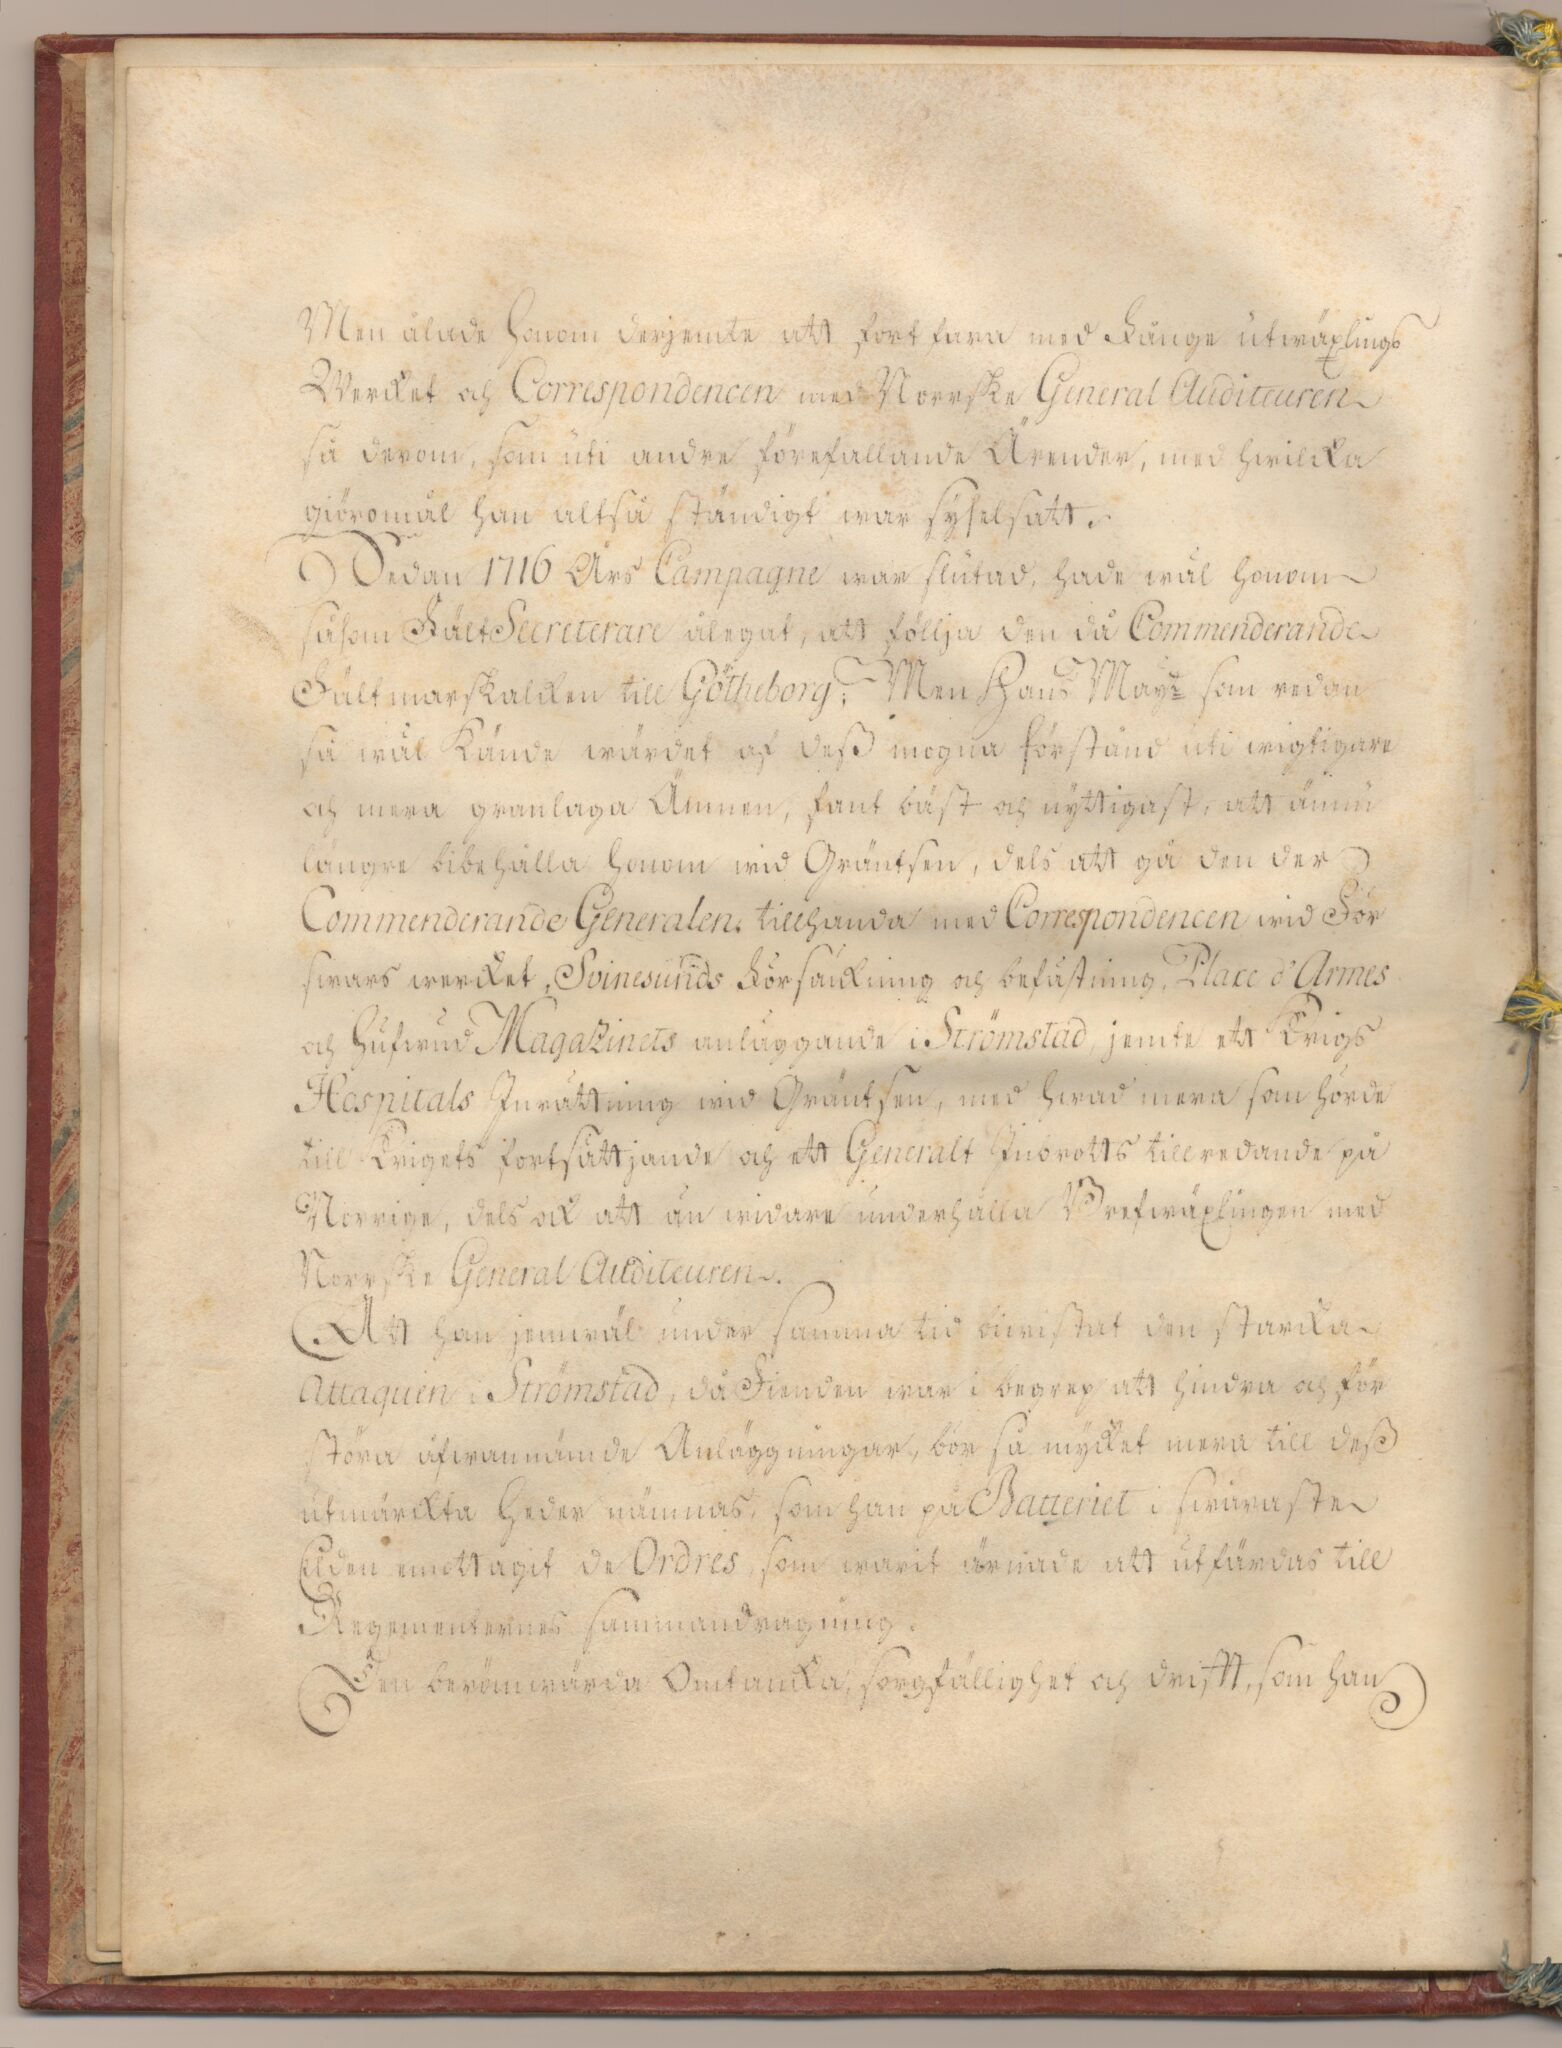 Men ålade honom derjemte att fortfara med Fånge utwäxlings
Wercket och Correspondencen med Norrske General Auditeuren
så derom, som uti andre förefallande Ärender, med hwilcka
giöromål han altså ständigt war syselsatt.
Sedan 1716 Års Campagne war slutad, hade wäl honom
såsom Fält Secreterare ålegat, att föllja den då Commenderande
Fältmarskalcken till Götheborg; Men Hans May:t som redan
så wäl kände wärdet af deß mogna förstånd uti wigtigare
och mera granlaga Ämnen, fant bäst och nyttigast, att ännu
längre bibehålla honom wid Gräntsen, dels att gå den der
Commenderande Generalen tillhanda med Correspondencen wid För
swars wercket, Svinesunds Försänckning och befästning, Place d'Armes
och Hufwud Magazinets anläggande i Strömstad, jemte ett Krigs
Hospitals Inrättning wid Gräntsen, med hwad mera som hörde
till Krigets fortsättjande och ett Generalt Inbrotts tillredande på
Norrige, dels ock att än widare underhålla Brefwäxlingen med
Norrske General Auditeuren.
Att han jemwäl under samma tid biwistat den starcka
Attaquen i Strömstad, då Fienden war i begrep att hindra och för
störa ofwannämde Anläggningar, bör så mycket mera till deß
utmärckta Heder nämnas, som han på Batteriet i swåraste
Elden emottagit de Ordres, som warit ärnade att utfärdas till
Regementernes sammandragning.
Den berömwärda Omtancka, sorgfällighet och drift, som han